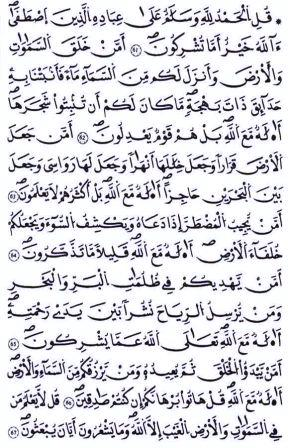 * قُلِ الْحَمْدُ لِلَّهِ وَسَلَٰمٌ عَلَىٰ عِبَادِهِ الَّذِينَ اَصْطَفَىٰ
ءَآللَّهُ خَيْرٌ اَمَّا تُشْرِكُونَ ٦١ أَمَّنْ خَلَقَ السَّمَٰوَٰتِ
وَالْأَرْضَ وَأَنزَلَ لَكُم مِّنَ السَّمَآءِ مَآءً فَأَنۢبَتْنَا بِهِ
حَدَآئِقَ ذَاتَ بَهْجَةٍ مَّا كَانَ لَكُمْ أَن تُنۢبِتُوا شَجَرَهَا
أَ۟لَٰهٌ مَّعَ اللَّهِ بَلْ هُمْ قَوْمٌ يَعْدِلُونَ ٦٢ أَمَّن جَعَلَ
الْأَرْضَ قَرَارًا وَجَعَلَ خِلَٰلَهَا أَنْهَٰرًا وَجَعَلَ لَهَا رَوَٰسِيَ وَجَعَلَ
بَيْنَ الْبَحْرَيْنِ حَاجِزًا أَ۟لَٰهٌ مَّعَ اللَّهِ بَلْ أَكْثَرُهُمْ لَا يَعْلَمُونَ ٦٣
أَمَّنْ يُّجِيبُ الْمُضْطَرَّ إِذَا دَعَاهُ وَيَكْشِفُ السُّوٓءَ وَيَجْعَلُكُمْ
خُلَفَآءَ الْأَرْضِ أَ۟لَٰهٌ مَّعَ اللَّهِ قَلِيلًا مَّا تَذَّكَّرُونَ ٦٤
أَمَّنْ يَّهْدِيكُمْ فِي ظُلُمَٰتِ الْبَرِّ وَالْبَحْرِ
وَمَنْ يُّرْسِلُ الرِّيَاحَ نُشُرًا بَيْنَ يَدَيْ رَحْمَتِهِ
أَ۟لَٰهٌ مَّعَ اللَّهِ تَعَٰلَى اللَّهُ عَمَّا يُشْرِكُونَ ٦٥
أَمَّنْ يَّبْدَؤُا الْخَلْقَ ثُمَّ يُعِيدُهُ وَمَنْ يَّرْزُقُكُم مِّنَ السَّمَآءِ وَالْأَرْضِ
أَ۟لَٰهٌ مَّعَ اللَّهِ قُلْ هَاتُوا بُرْهَٰنَكُمْ إِن كُنتُمْ صَٰدِقِينَ ٦٦ قُل لَّا يَعْلَمُ مَن
فِي السَّمَٰوَٰتِ وَالْأَرْضِ الْغَيْبَ إِلَّا اللَّهُ وَمَا يَشْعُرُونَ أَيَّانَ يُبْعَثُونَ ٦٧